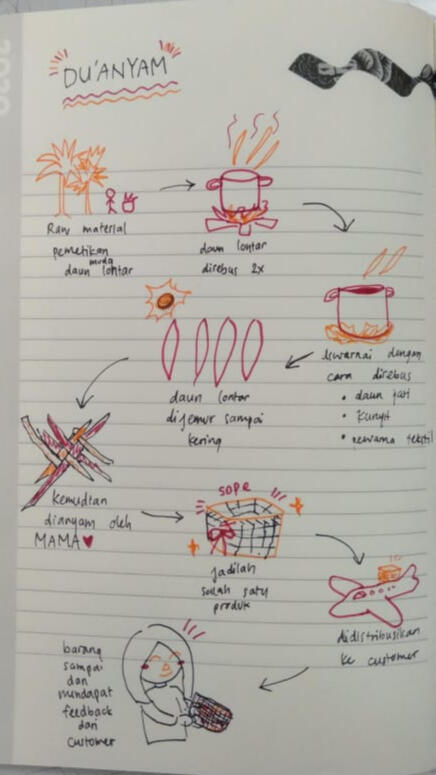 DU'ANYAM
Raw material
pemetikan
muda
daun lontar
daun lontar
direbus 2x
diwarnai dengan
cara direbus
• daun jati
• kunyit
• pewarna tekstil
daun lontar
dijemur sampai
kering
kemudian
dianyam oleh
MAMA ♥
sope
jadilah
salah satu
produk
didistribusikan
ke customer
barang
sampai
dan
mendapat
feedback
dari
customer